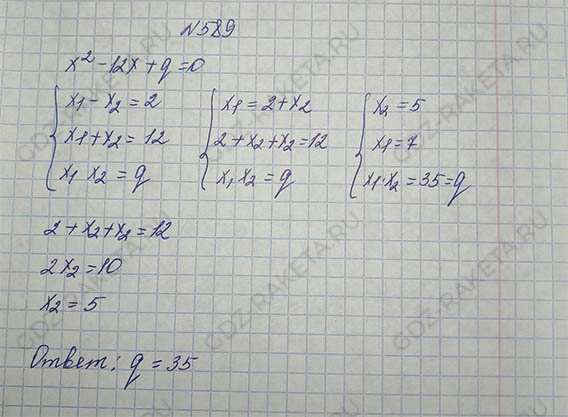 №589
x² - 12x + q = 0
x₁ - x₂ = 2
x₁ + x₂ = 12
x₁ x₂ = q
x₁ = 2 + x₂
2 + x₂ + x₂ = 12
x₁ x₂ = q
x₂ = 5
x₁ = 7
x₁ · x₂ = 35 = q
2 + x₂ + x₂ = 12
2x₂ = 10
x₂ = 5
Ответ: q = 35
GDZ-RAKETA.RU
GDZ-RAKETA.RU
GDZ-RAKETA.RU
GDZ-RAKETA.RU
GDZ-RAKETA.RU
GDZ-RAKETA.RU